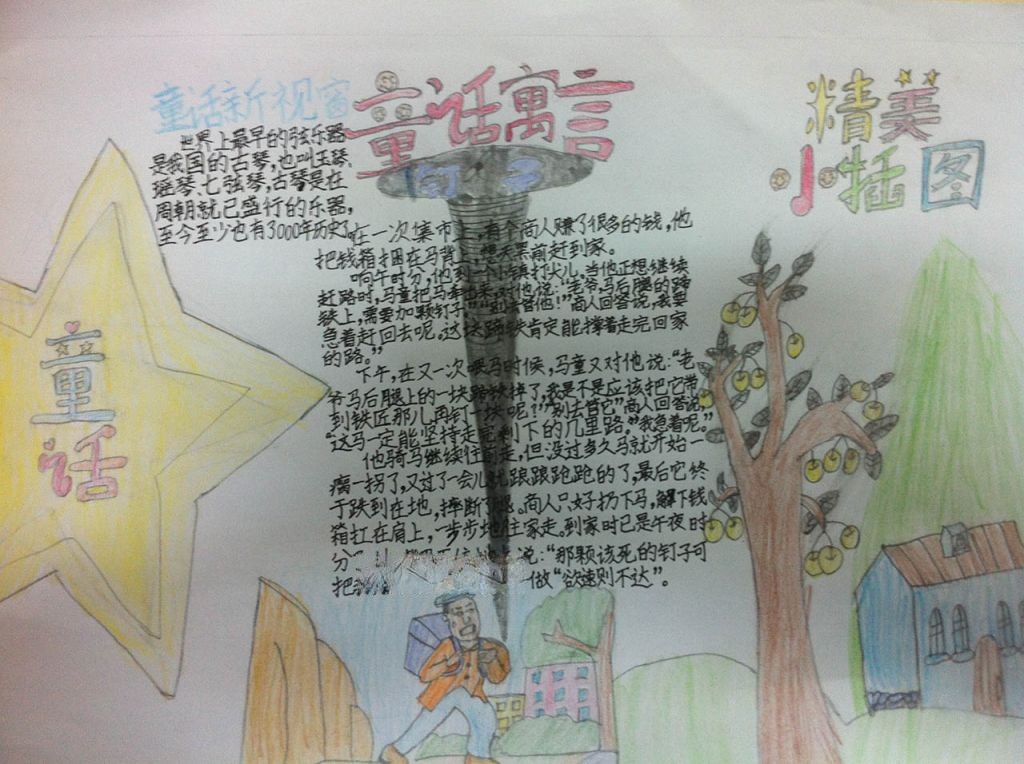 童话新视窗
世界上最早的弦乐器
是我国的古琴,也叫玉琴、
瑶琴、七弦琴,古琴是在
周朝就已盛行的乐器,
至今至少也有3000年历史了。
童话寓言
精美
小插图
童话
在一次集市上,有个商人赚了很多的钱,他
把钱箱捆在马背上,想天黑前赶到家。
响午时分,他到一个小镇打火儿。当他正想继续
赶路时,马童把马牵出来对他说:“老爷,马后腿的蹄
铁上,需要加颗钉子。”“别去管他!”商人回答说,我要
急着赶回去呢。这块蹄铁肯定能撑着走完回家
的路。”
下午,在又一次喂马时候,马童又对他说:“老
爷马后腿上的一块蹄铁掉了,我是不是应该把它带
到铁匠那儿再钉一块呢!”“别去管它”商人回答说,
“这马一定能坚持走完剩下的几里路。“我急着呢。”
他骑马继续往前走,但没过多久马就开始一
瘸一拐了,又过了一会儿就踉踉跄跄的了,最后它终
于跌到在地,摔断了腿。商人只好扔下马,解下钱
箱扛在肩上,一步步地往家走。到家时已是午夜时
分”
说:“那颗该死的钉子可
把
做“欲速则不达”。